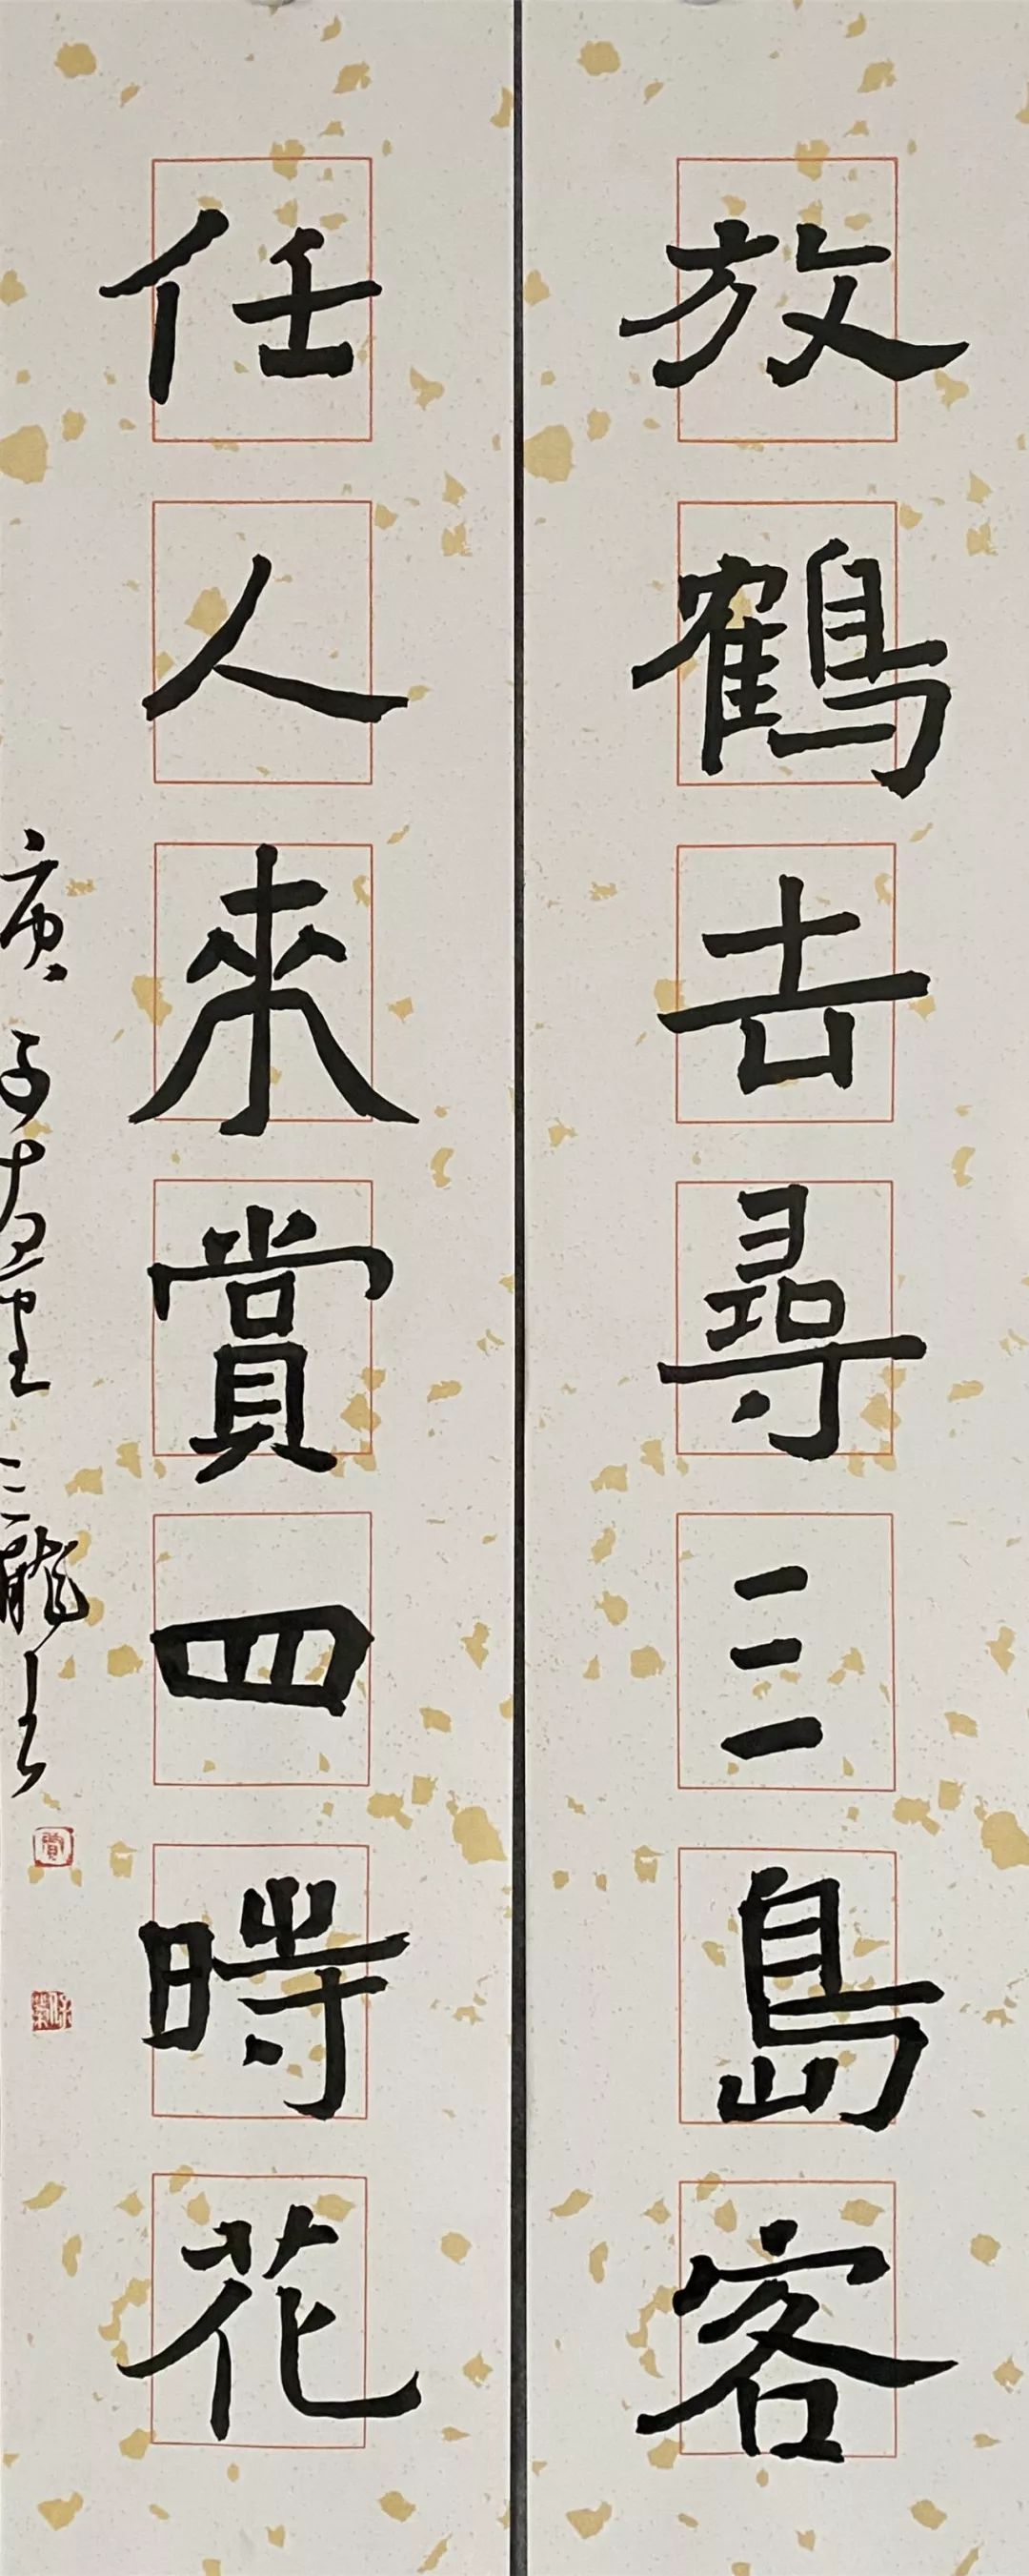 放鶴去尋三島客
任人來賞四時花
庚子